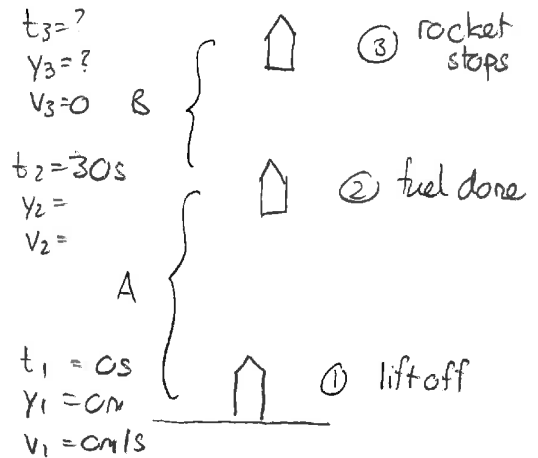 t3=?
y3=?
v3=0
B
③ rocket
stops
t2=30s
y2=
v2=
② fuel done
A
t1 = 0s
y1 = 0m
v1 = 0m/s
① lift off